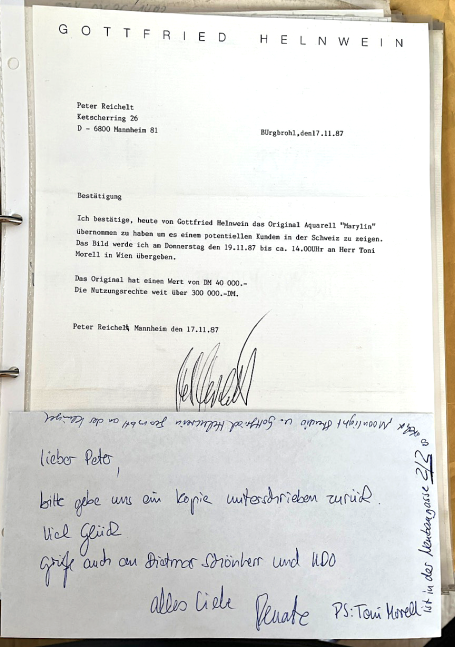 GOTTFRIED HELNWEIN
Peter Reichelt
Ketscherring 26
D - 6800 Mannheim 81
BUrgbrohl,den17.11.87
Bestätigung
Ich bestätige, heute von Gottfried Helnwein das Original Aquarell "Marylin"
übernommen zu haben um es einem potentiellen Kundem in der Schweiz zu zeigen.
Das Bild werde ich am Donnerstag den 19.11.87 bis ca. 14.00UHr an Herr Toni
Morell in Wien übergeben.
Das Original hat einen Wert von DM 40 000.-
Die Nutzungsrechte weit über 300 000.-DM.
Peter Reichelt, Mannheim den 17.11.87
lieber Peter,
bitte gebe uns ein Kopie unterschrieben zurück.
Viel Glück
Grüße auch an Dietmar Schönherr und UDO
alles Liebe Renate
PS: Toni Morell
ist in der 2/2
Moonlight Studio u. Gottfried Helnwein an der